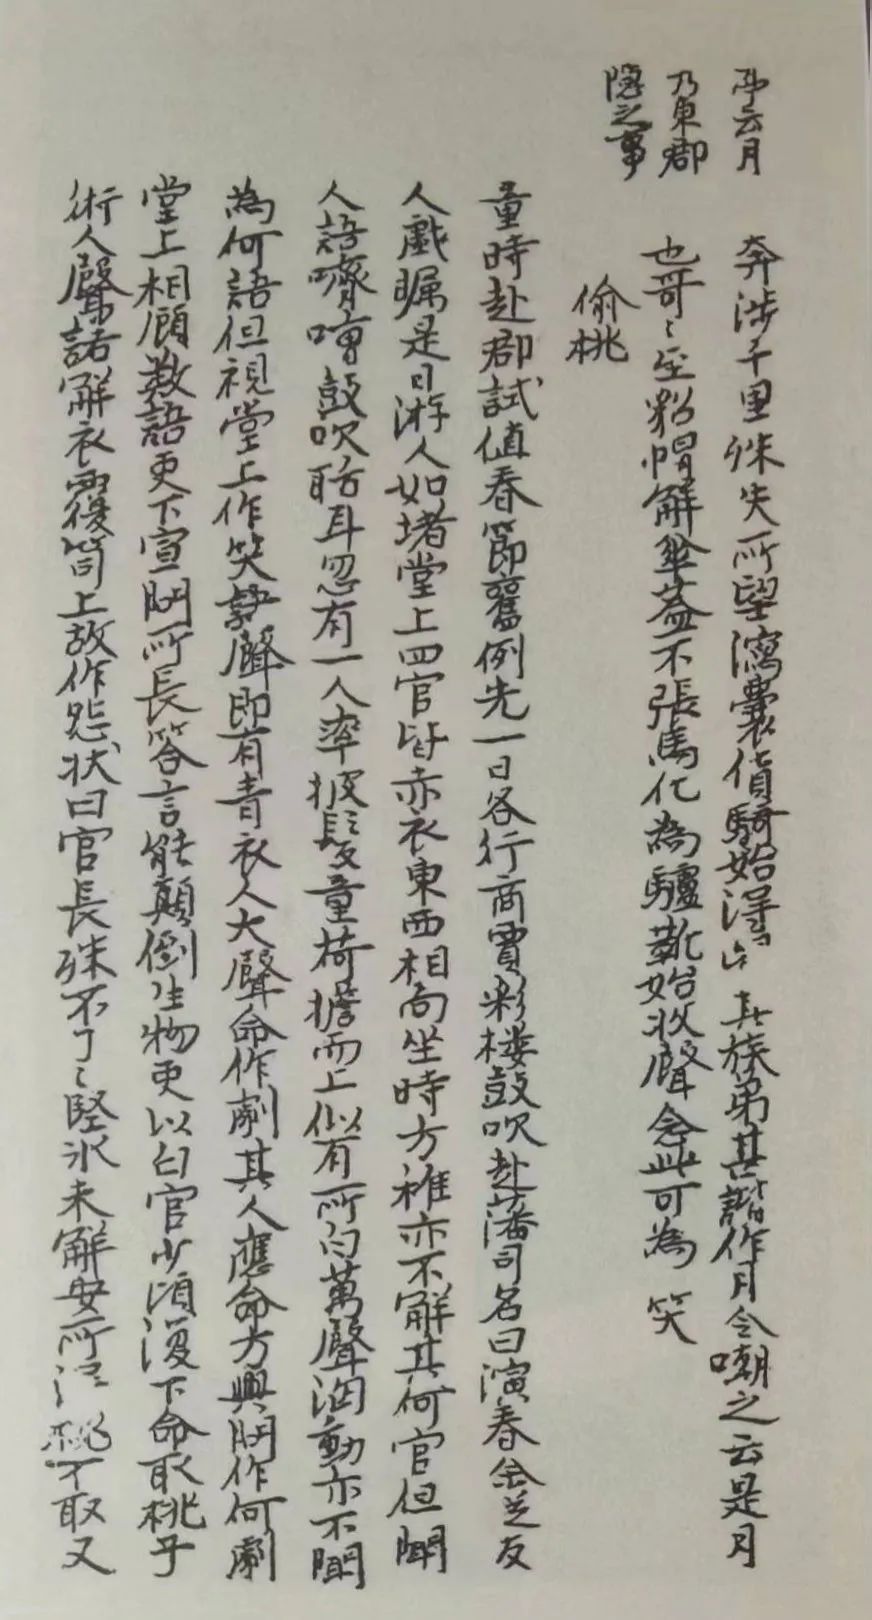 云月
乃東郡
隱之事
奔涉千里殊失所望瀉囊貨騎始得其族弟甚諧作月令嘲之云是月
也哥〻至貂帽解傘蓋不張馬化為驢靴始收聲念此可為笑
偷桃
童時赴郡試值春節舊例先一日各行商賈彩楼鼓吹赴藩司名曰演春余从友
人戲矚是日游人如堵堂上四官皆赤衣東西相向坐時方稚亦不解其何官但聞
人語嚌嘈鼓吹聒耳忽有一人率披髮童荷擔而上似有所白萬聲洶動亦不聞
為何語但視堂上作笑聲即有青衣人大聲命作劇其人應命方興問作何劇
堂上相顧數語吏下宣問所長答言能顛倒生物吏以白官少頃復下命取桃子
術人聲諾解衣覆笥上故作怨狀曰官長殊不了〻堅冰未解安所得桃不取又